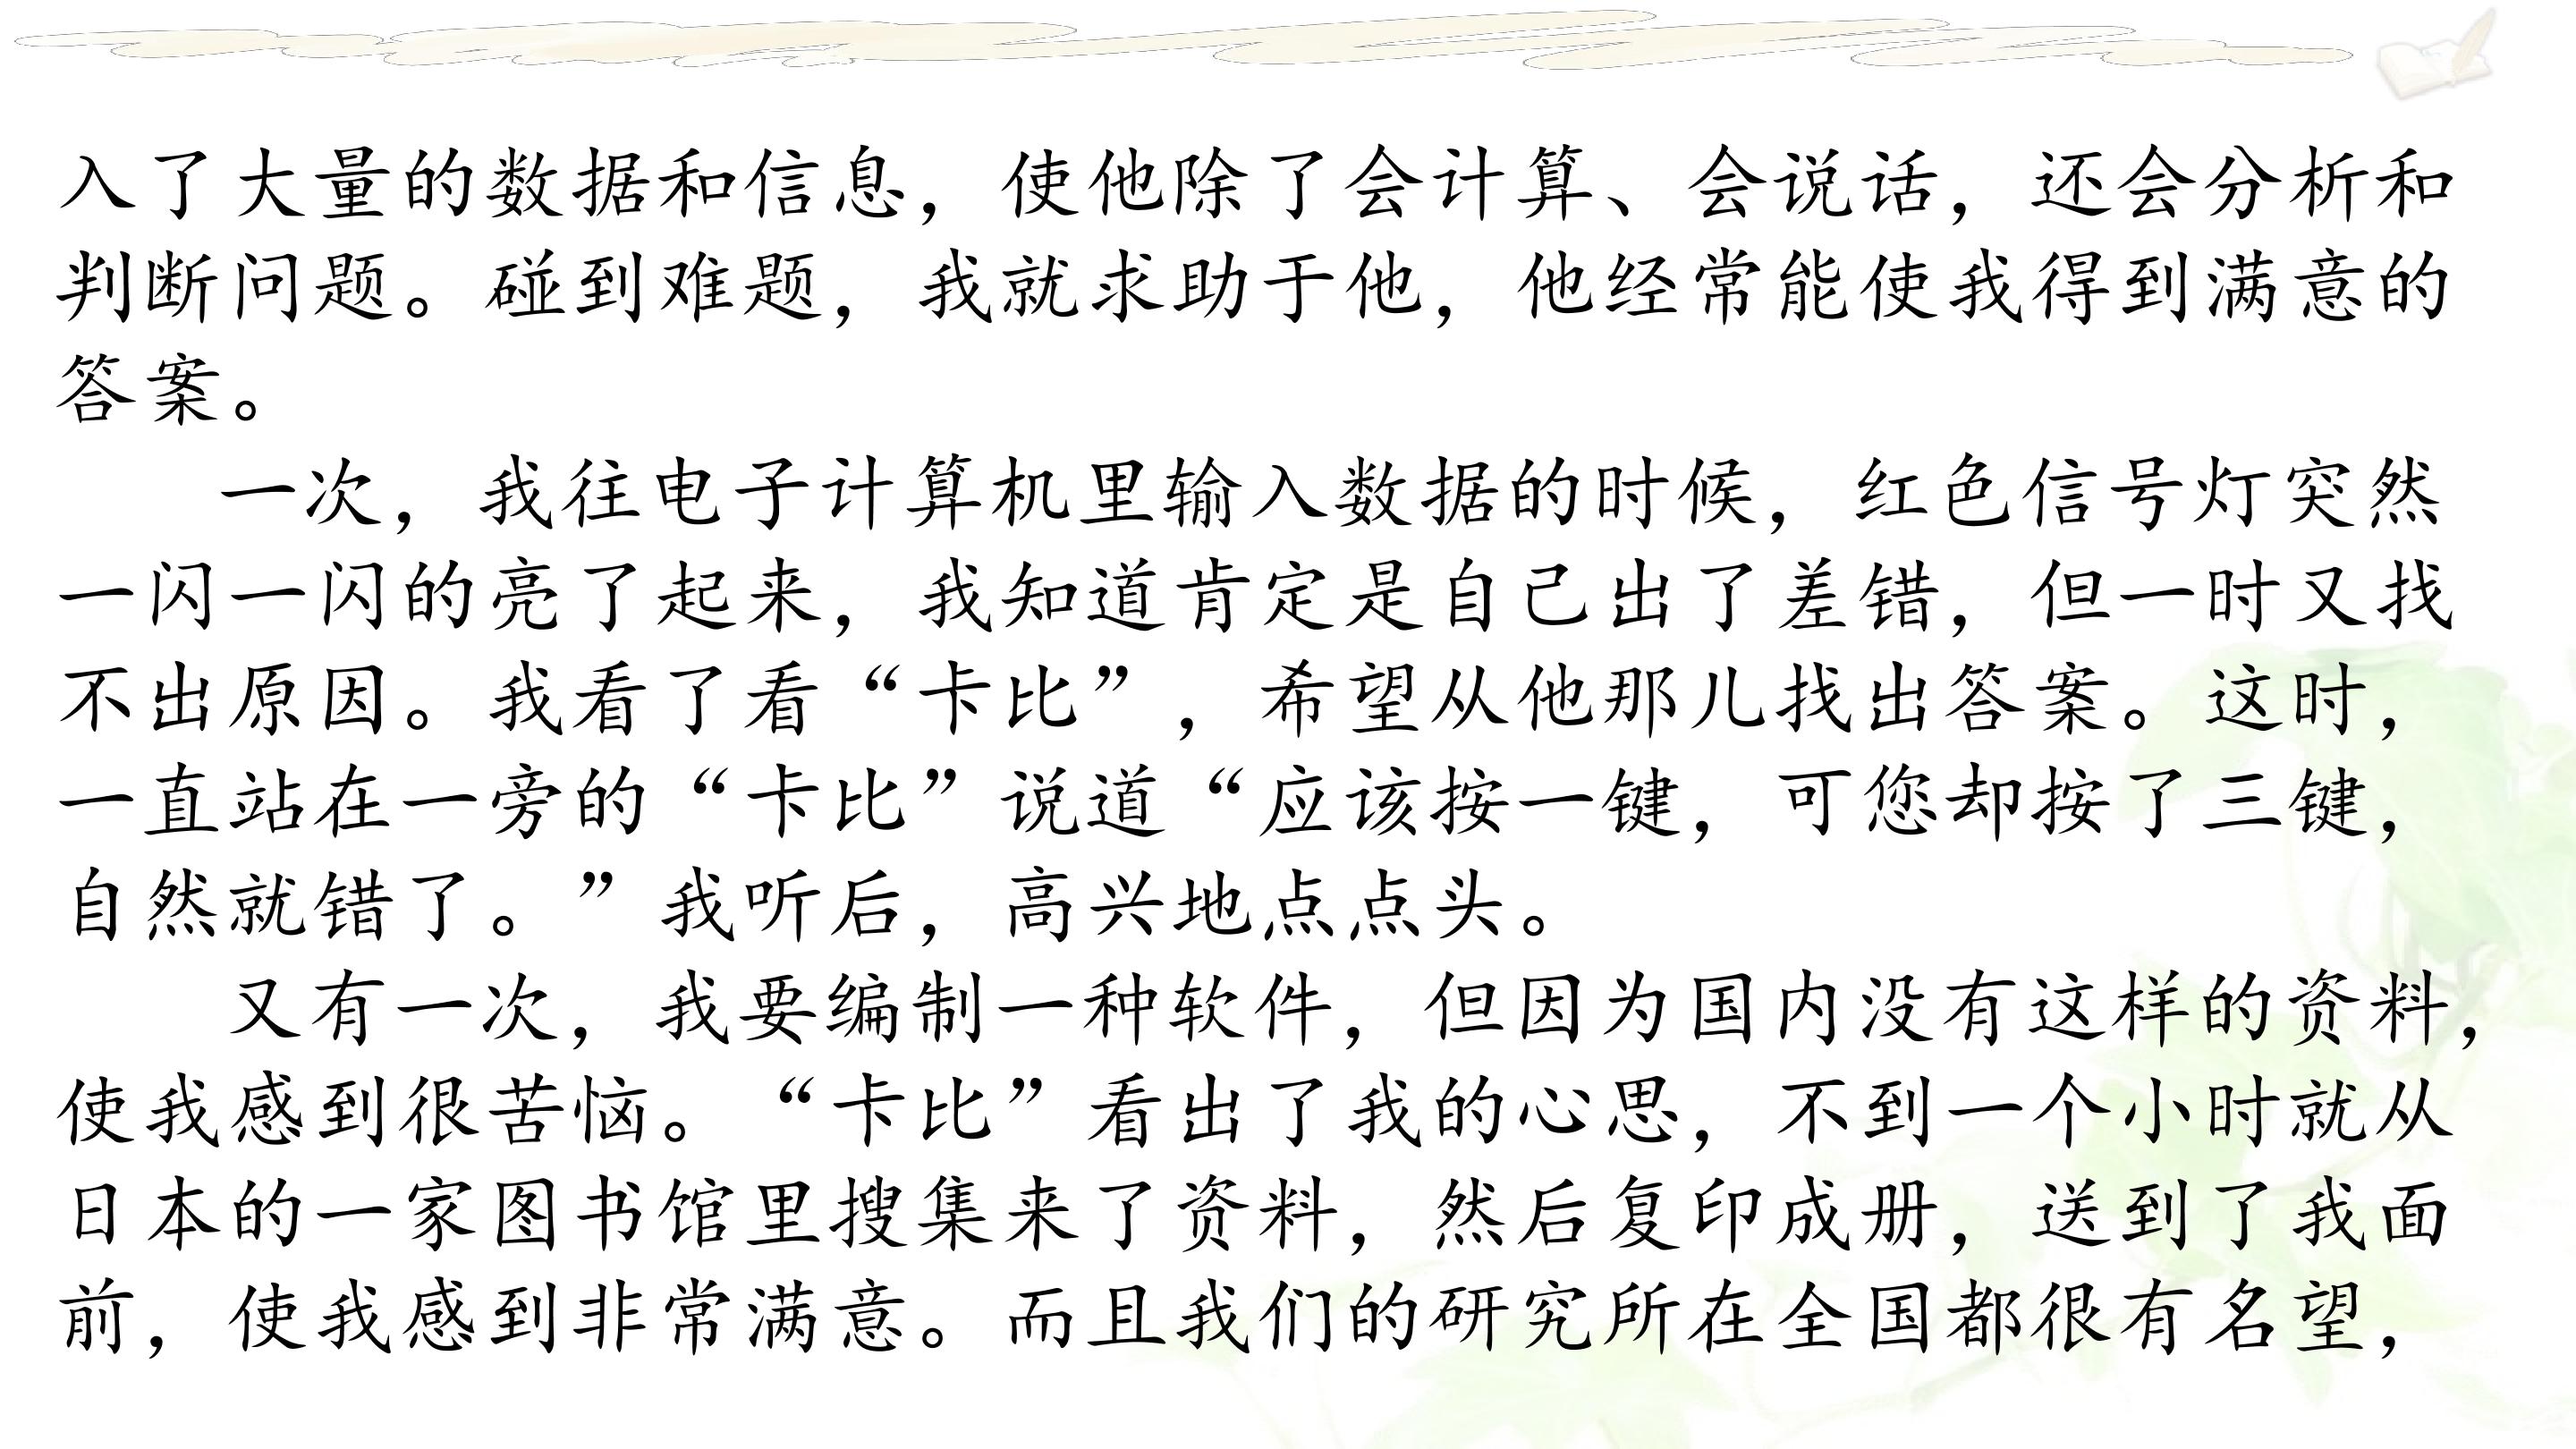 入了大量的数据和信息，使他除了会计算、会说话，还会分析和
判断问题。碰到难题，我就求助于他，他经常能使我得到满意的
答案。
一次，我往电子计算机里输入数据的时候，红色信号灯突然
一闪一闪的亮了起来，我知道肯定是自己出了差错，但一时又找
不出原因。我看了看“卡比”，希望从他那儿找出答案。这时，
一直站在一旁的“卡比”说道“应该按一键，可您却按了三键，
自然就错了。”我听后，高兴地点点头。
又有一次，我要编制一种软件，但因为国内没有这样的资料，
使我感到很苦恼。“卡比”看出了我的心思，不到一个小时就从
日本的一家图书馆里搜集来了资料，然后复印成册，送到了我面
前，使我感到非常满意。而且我们的研究所在全国都很有名望，